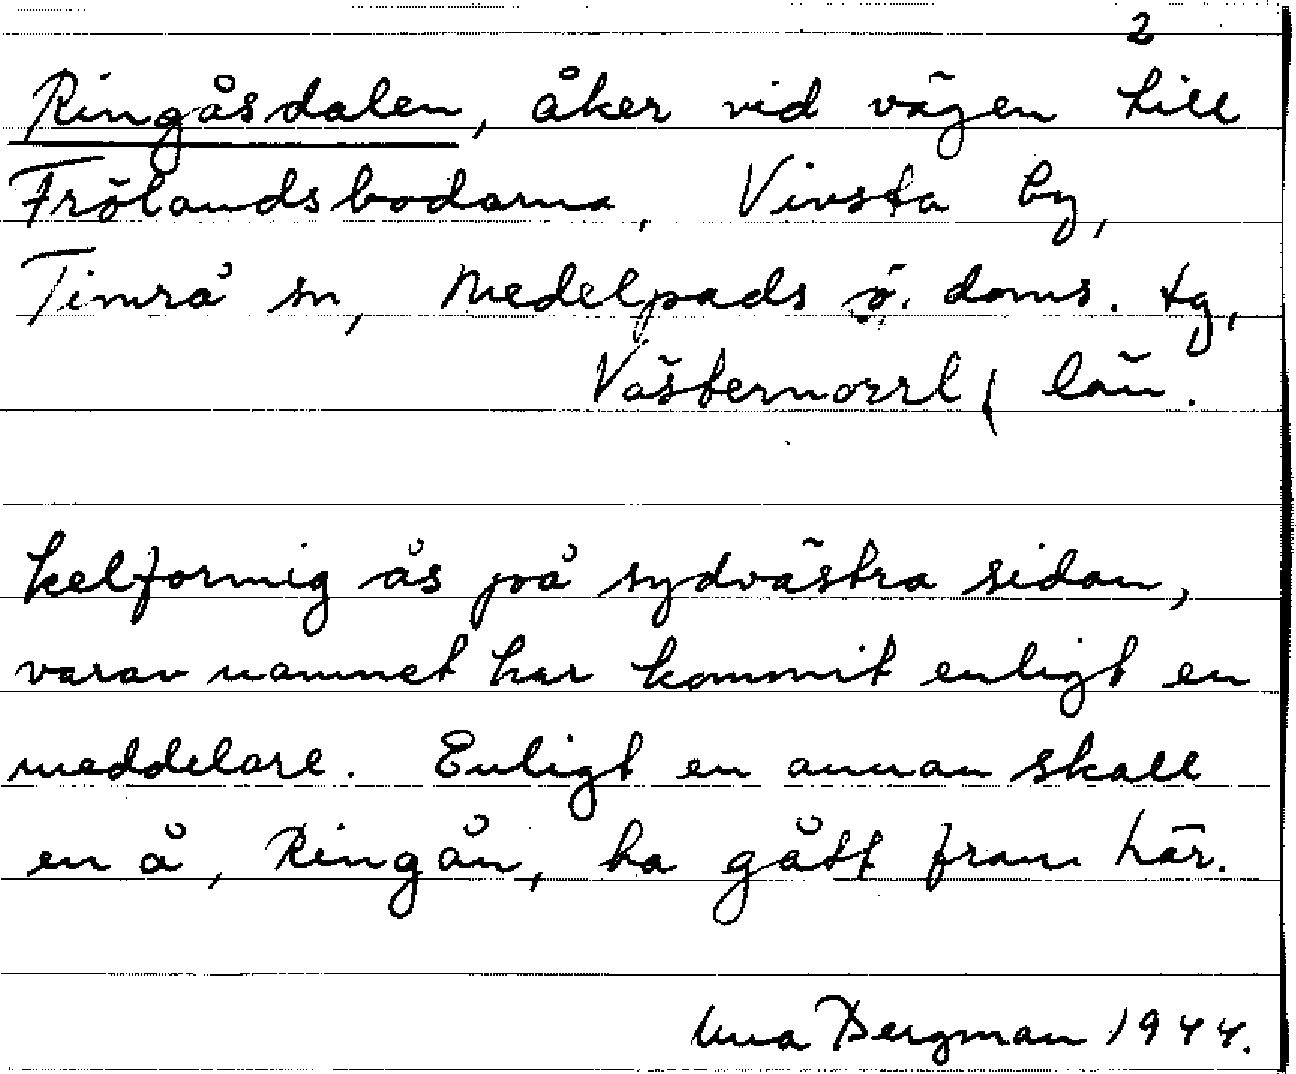 2
Ringåsdalen, åker vid vägen till
Frölandsbodarna, Vivsta by,
Timrå sn, Medelpads ö. doms. tg,
Västernorrl. län.
kelformig ås på sydvästra sidan,
varav namnet har kommit enligt en
meddelare. Enligt en annan skall
en å, Ringån, ha gått fram här.
Bergman 1944.